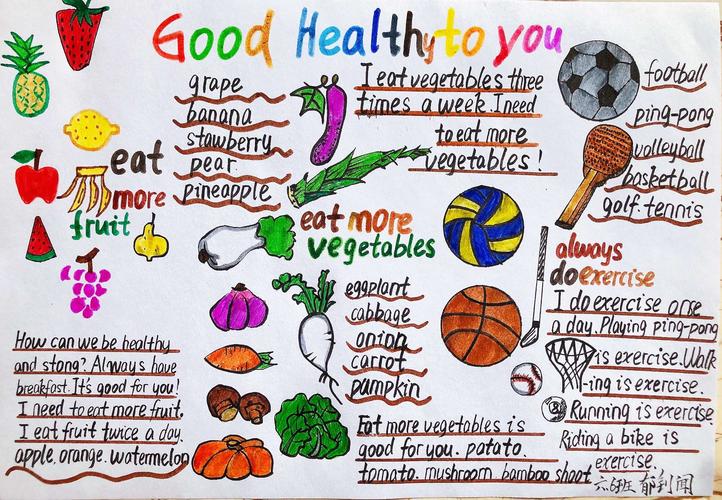 Good Healthy to you
grape
banana
stawberry
pear
pineapple
eat
more
fruit
How can we be healthy
and stong? Always have
breakfast. It's good for you!
I need to eat more fruit.
I eat fruit twice a day.
apple. orange. watermelon
I eat vegetables three
times a week. I need
to eat more
vegetables!
eat more
vegetables
eggplant
cabbage
onion
carrot
pumpkin
Eat more vegetables is
good for you. patato.
tomato. mushroom bamboo shoot
football
ping-pong
volleyball
basketball
golf. tennis
always
do exercise
I do exercise orse
a day. Playing ping-pong
is exercise. Walk
-ing is exercise.
Running is exercise
Riding a bike is
exercise.
六6班